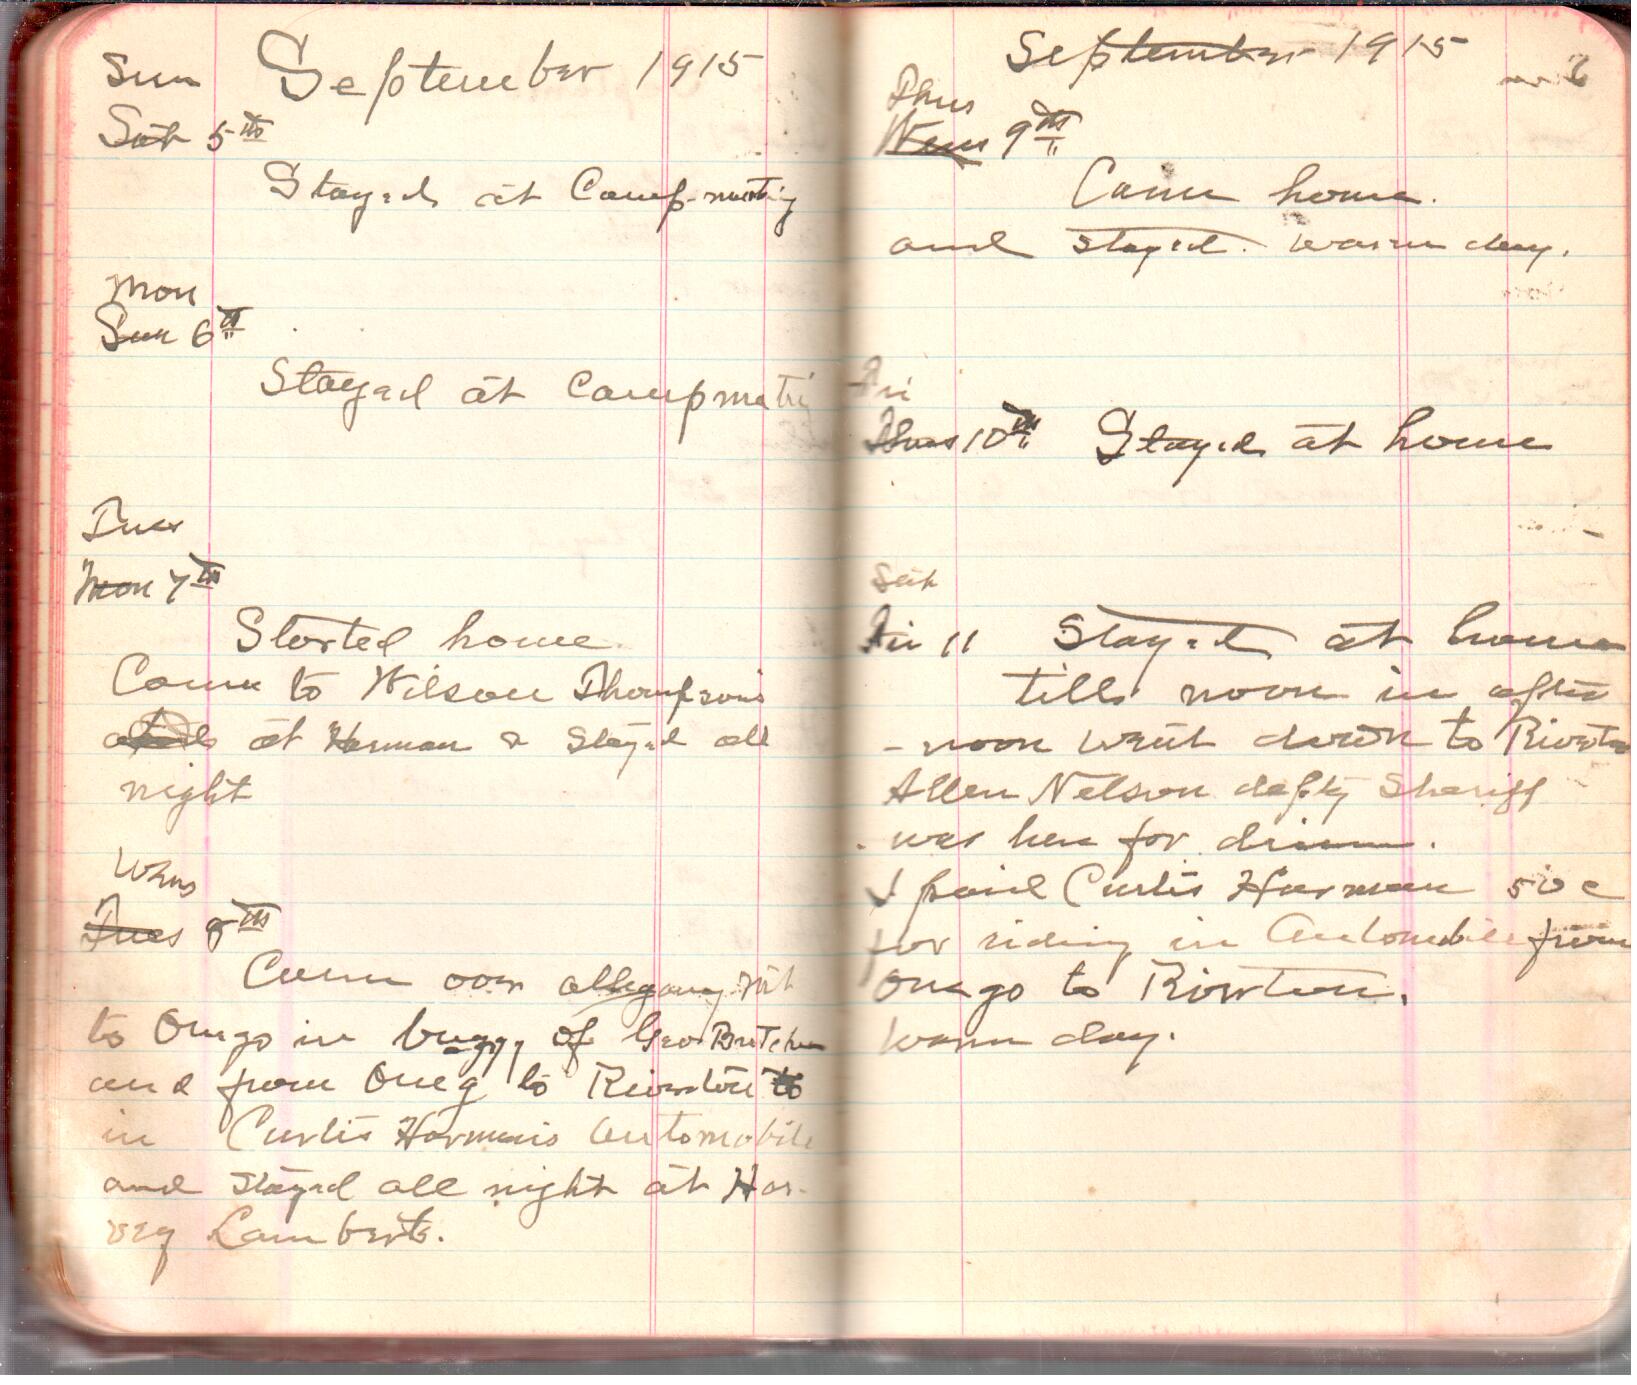 September 1915
Sun
Sat 5th
Stayed at Camp-meeting
Mon
Sun 6th
Stayed at Campmeti
Tues
Mon 7th
Started home
Came to Wilson Thompson's
at Harman & Stayed all
night
Wens
Tues 8th
Came over allegany
to Onego in buggy of Geo Butcher
and from Oneg to Riverton to
in Curtis Harman's automobile
and stayed all night at Har-
vey Lamberts.
September 1915
Thus
Wens 9th
Came home.
and stayed. warm day.
Fri
Thus 10th Stayed at home
Sat
Fri 11 Stayed at home
till noon in after
-noon went down to Riverton
Allen Nelson depty Sheriff
was here for
I paid Curtis Harman 50c
for riding in Automobile from
Onego to Riverton.
warm day.